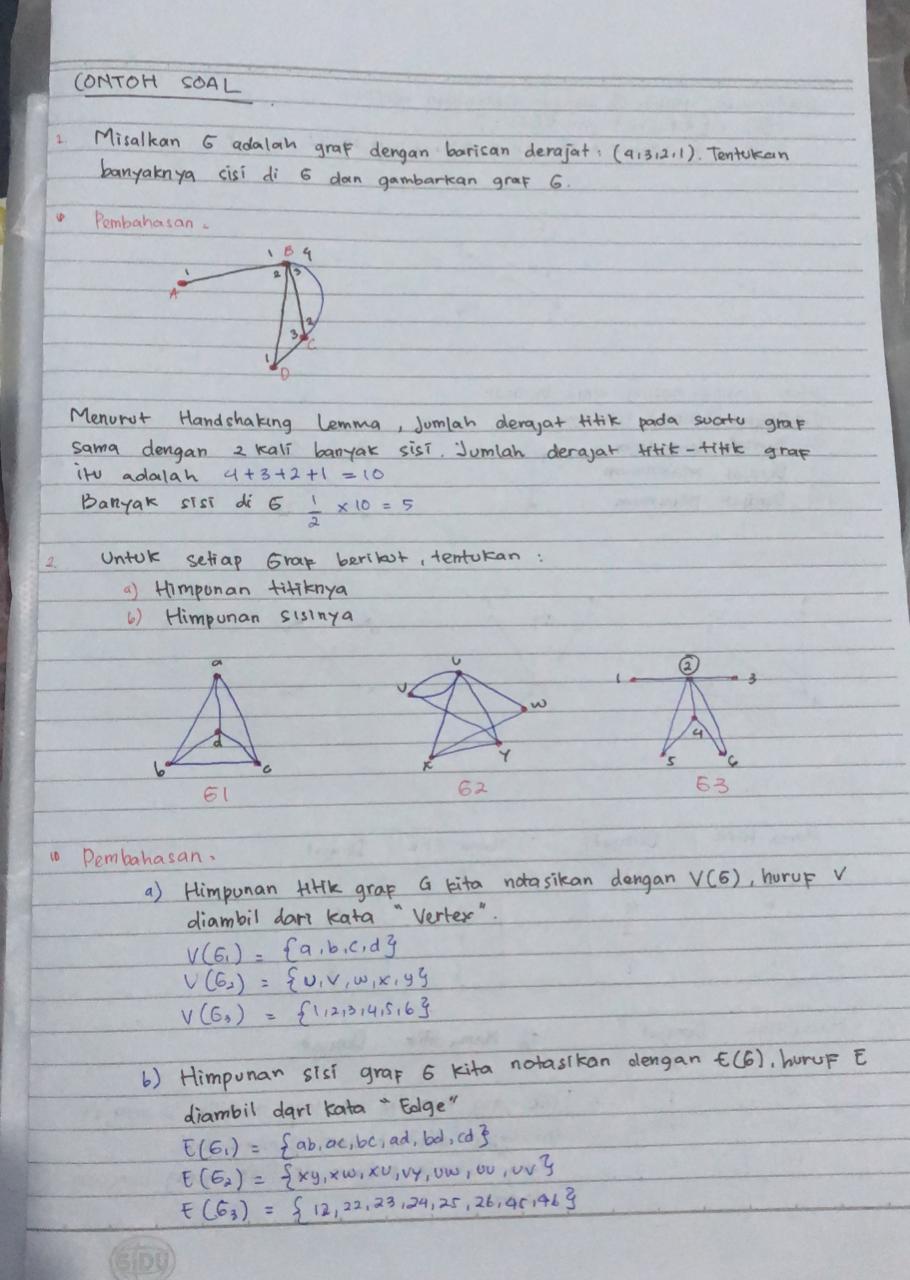 CONTOH SOAL
1. Misalkan G adalah graf dengan barisan derajat : (4,3,2,1). Tentukan
banyaknya sisi di G dan gambarkan graf G.
Pembahasan.
1 B 4
1 2 3
A
2
3 C
1
D
Menurut Handshaking Lemma, Jumlah derajat titik pada suatu graf
sama dengan 2 kali banyak sisi. Jumlah derajat titik-titik graf
itu adalah 4+3+2+1 = 10
Banyak sisi di G 1/2 x 10 = 5
2. Untuk setiap Graf berikut, tentukan :
a) Himpunan titiknya
b) Himpunan sisinya
a u 2
v 1 3
w
d 4
b c x y 5 6
G1 G2 G3
Pembahasan.
a) Himpunan titik graf G kita notasikan dengan V(G), huruf V
diambil dari kata "Vertex".
V(G1) = {a,b,c,d}
V(G2) = {u,v,w,x,y}
V(G3) = {1,2,3,4,5,6}
b) Himpunan sisi graf G kita notasikan dengan E(G), huruf E
diambil dari kata "Edge"
E(G1) = {ab,ac,bc,ad,bd,cd}
E(G2) = {xy,xw,xu,vy,uw,uv,uv}
E(G3) = {12,22,23,24,25,26,45,46}
SIDU